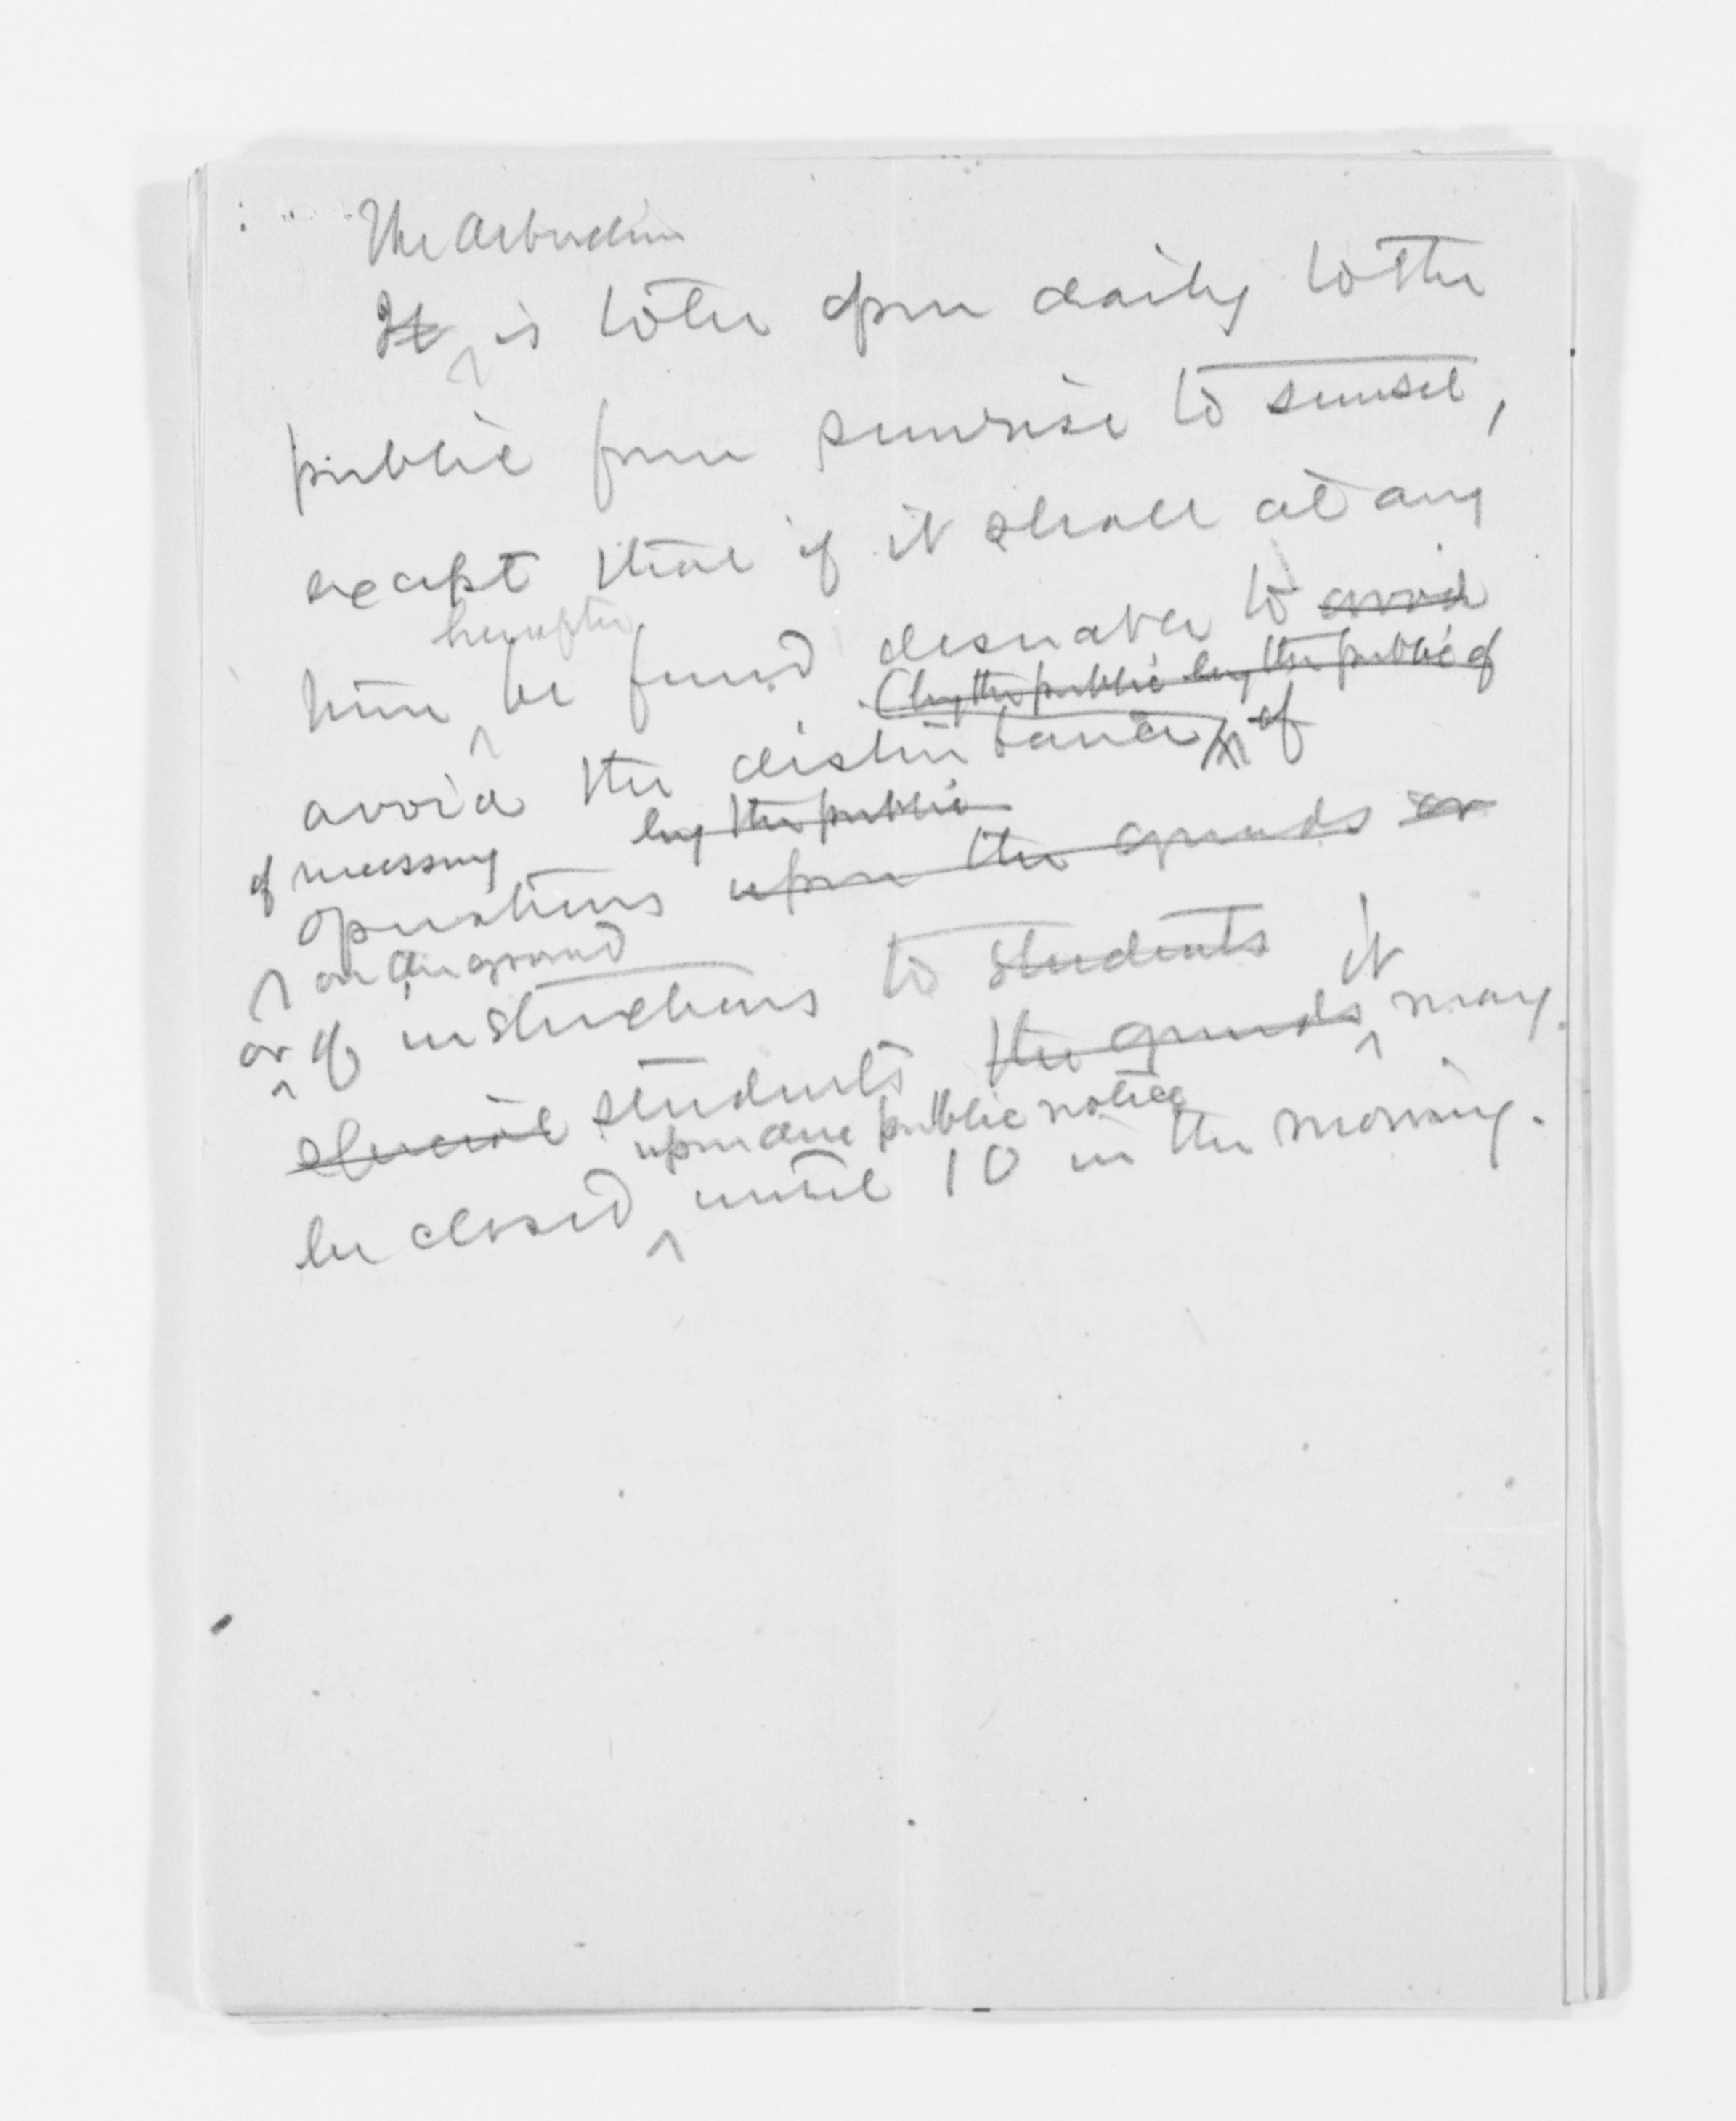 The Arboretum
It is to be open daily to the
public from sunrise to sunset,
except that if it shall at any
hereafter
time be found desirable to avoid
(by the public by the public of
avoid the disturbance of
of necessary by the public
operations upon the grounds or
on the ground
or of instructions to students it
special students the grounds may
upon due public notice
be closed until 10 in the morning.